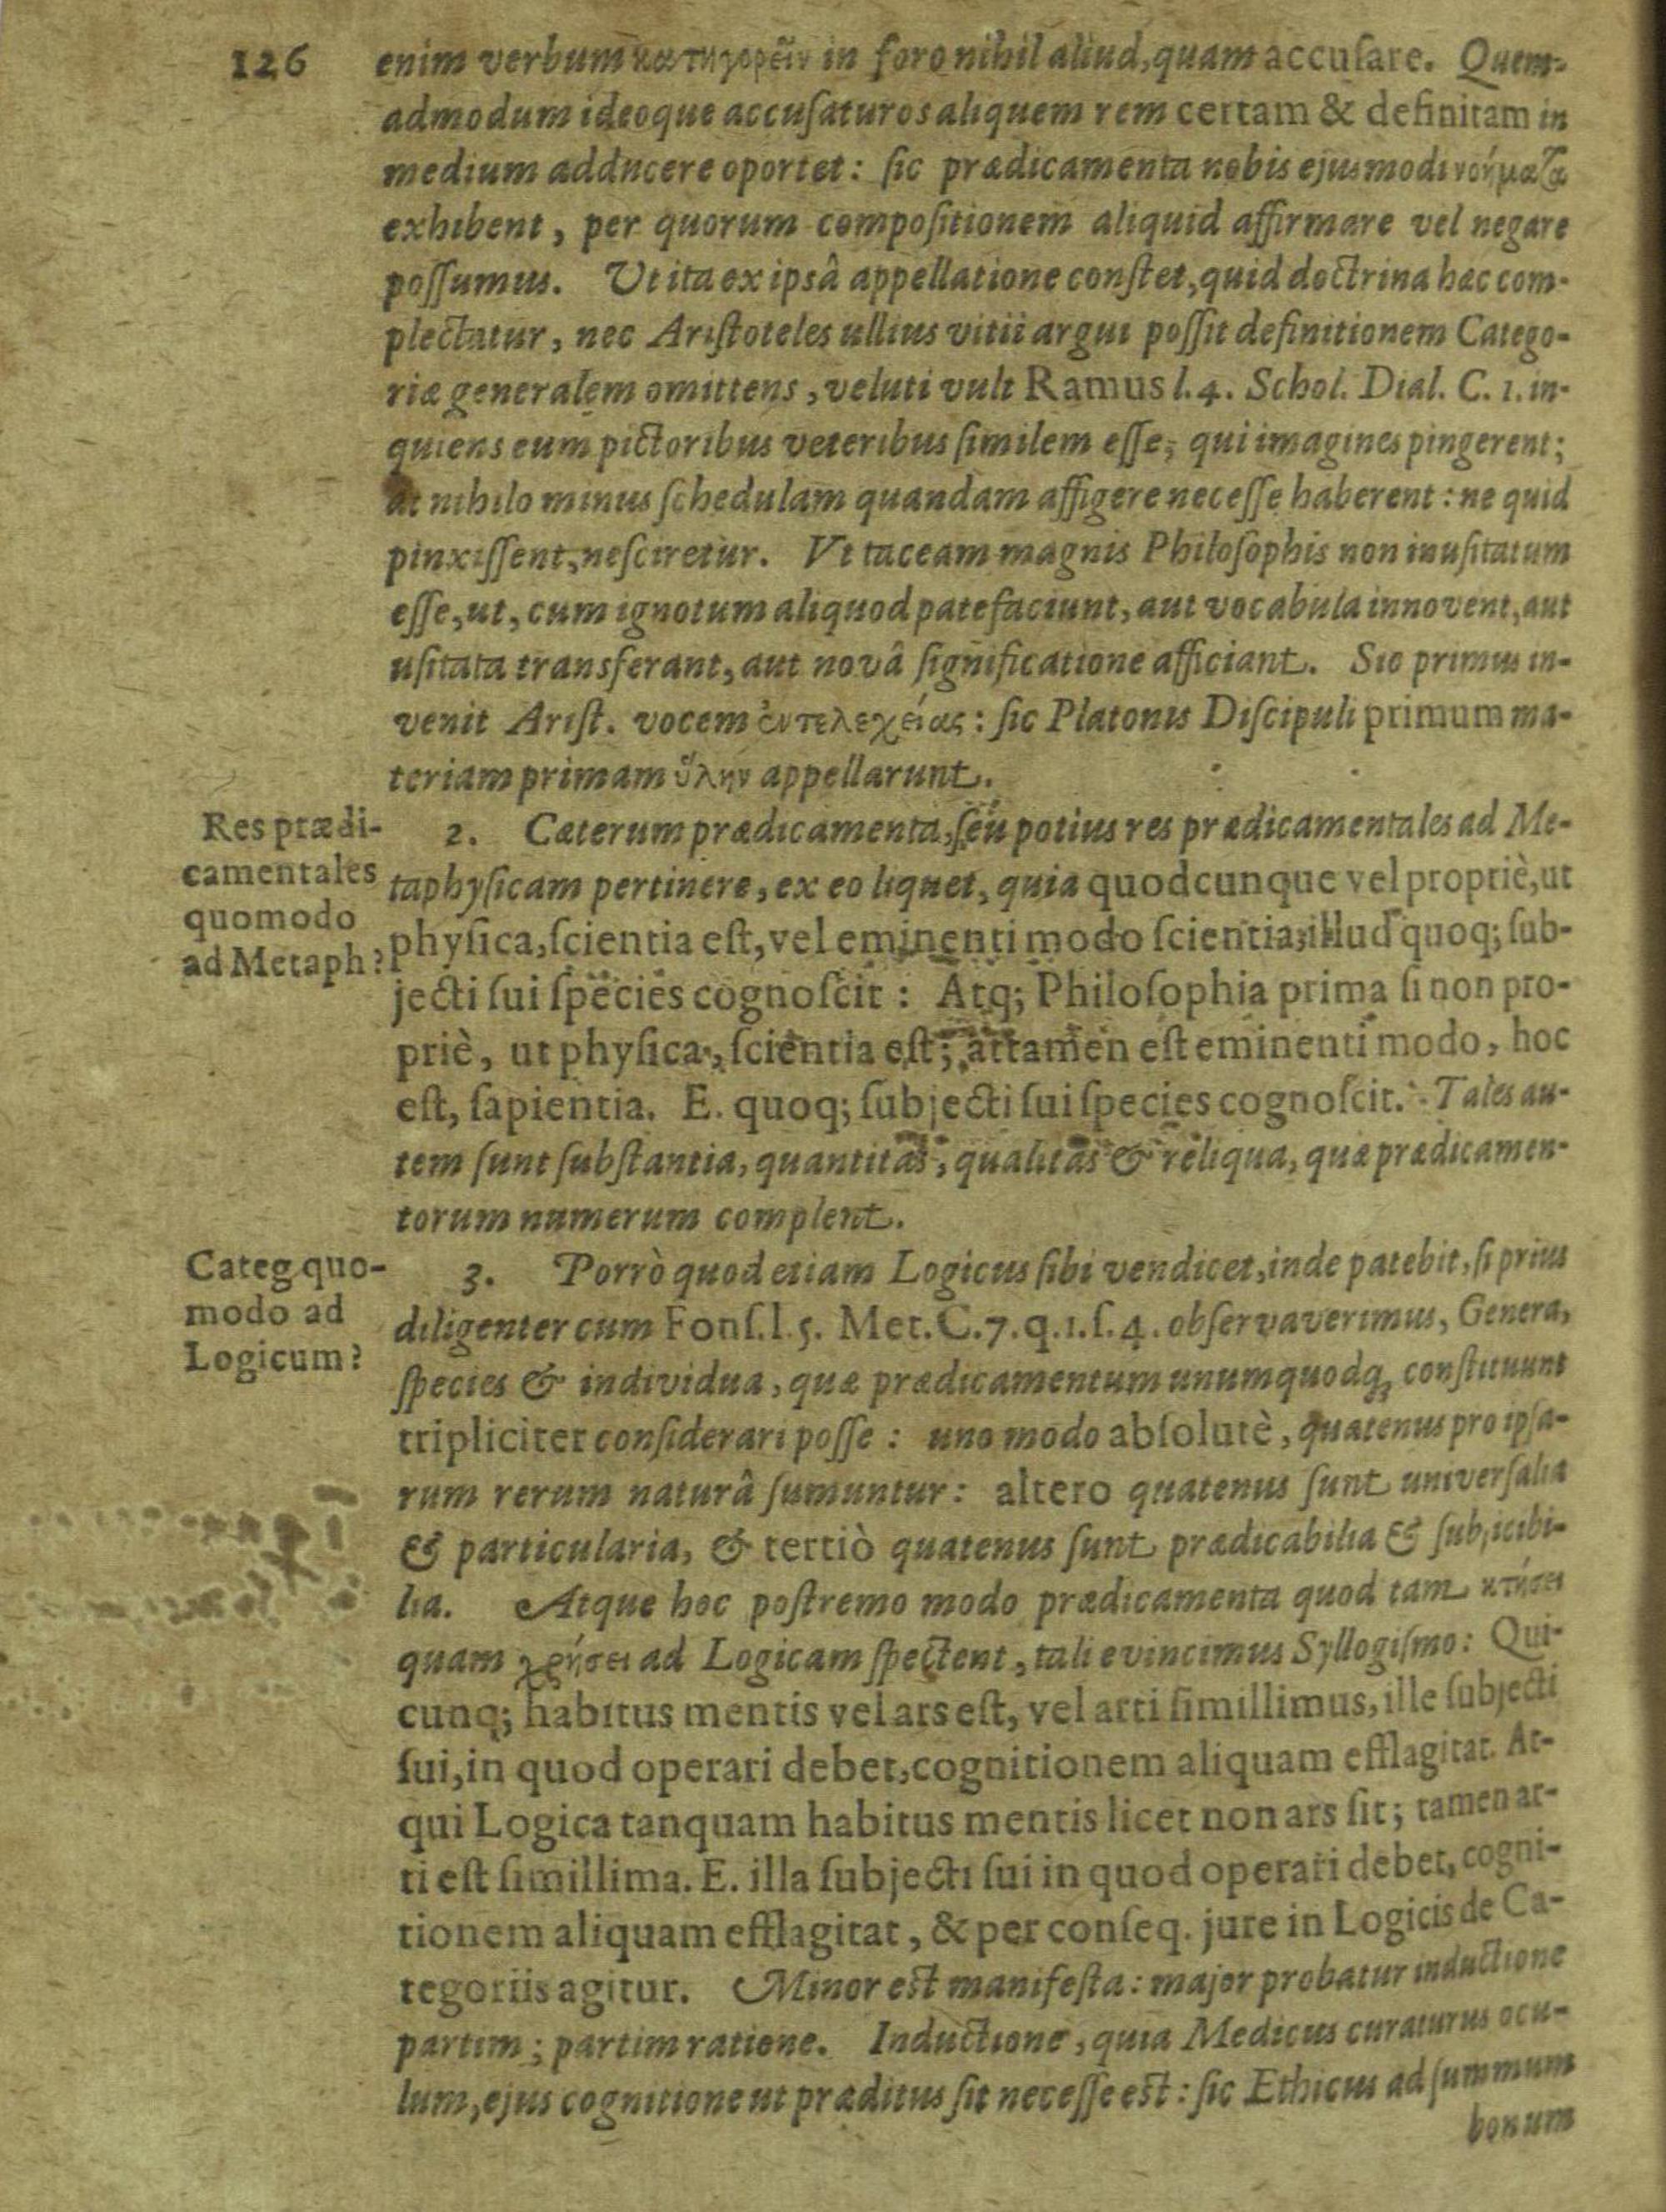 126
enim verbum κατηγορεῖν in foro nihil aliud, quam accuſare. Quem-
admodum ideoque accuſaturos aliquem rem certam & definitam in
medium adducere oportet: ſic prædicamenta nobis ejusmodi νοήματα
exhibent, per quorum compoſitionem aliquid affirmare vel negare
poſſumus. Ut ita ex ipsâ appellatione conſtet, quid doctrina hæc com-
plectatur, nec Ariſtoteles ullius vitii argui poſſit definitionem Catego-
riæ generalem omittens, veluti vult Ramus l. 4. Schol. Dial. C. 1. in-
quiens eum pictoribus veteribus ſimilem eſſe, qui imagines pingerent;
at nihilo minus ſchedulam quandam affigere neceſſe haberent: ne quid
pinxiſſent, neſciretur. Vt taceam magnis Philoſophis non inuſitatum
eſſe, ut, cum ignotum aliquod patefaciunt, aut vocabula innovent, aut
uſitata transferant, aut novâ ſignificatione afficiant. Sic primus in-
venit Ariſt. vocem ἐντελεχείας: ſic Platonis Diſcipuli primum ma-
teriam primam ὕλην appellarunt.
Res prædi-
camentales
quomodo
ad Metaph?
2. Cæterum prædicamenta, ſeu potius res prædicamentales ad Me-
taphyſicam pertinere, ex eo liquet, quia quodcunque vel propriè, ut
phyſica, ſcientia eſt, vel eminenti modo ſcientia; illud quoq; ſub-
jecti ſui ſpecies cognoſcit: Atq; Philoſophia prima ſi non pro-
priè, ut phyſica, ſcientia eſt; attamen eſt eminenti modo, hoc
eſt, ſapientia. E. quoq; ſubjecti ſui ſpecies cognoſcit. Tales au-
tem ſunt ſubſtantia, quantitas, qualitas & reliqua, quæ prædicamen-
torum numerum complent.
Categ quo-
modo ad
Logicum?
3. Porrò quod etiam Logicus ſibi vendicet, inde patebit, ſi prius
diligenter cum Fonſ. l. 5. Met. C. 7. q. 1. ſ. 4. obſervaverimus, Genera,
ſpecies & individua, quæ prædicamentum unumquodq; conſtituunt
tripliciter conſiderari poſſe: uno modo abſolutè, quatenus pro ipſa-
rum rerum naturâ ſumuntur: altero quatenus ſunt univerſalia
& particularia, & tertiò quatenus ſunt prædicabilia & ſubjicibi-
lia. Atque hoc poſtremo modo prædicamenta quod tam κτήσει
quam χρήσει ad Logicam ſpectent, tali evincimus Syllogiſmo: Qui-
cunq; habitus mentis vel ars eſt, vel arti ſimillimus, ille ſubjecti
ſui, in quod operari debet, cognitionem aliquam efflagitat. At-
qui Logica tanquam habitus mentis licet non ars ſit; tamen ar-
ti eſt ſimillima. E. illa ſubjecti ſui in quod operari debet, cogni-
tionem aliquam efflagitat, & per conſeq. jure in Logicis de Ca-
tegoriis agitur. Minor eſt manifeſta: major probatur inductione
partim; partim ratione. Inductione, quia Medicus curaturus ocu-
lum, ejus cognitione ut præditus ſit neceſſe eſt: ſic Ethicus ad ſummum
bonum